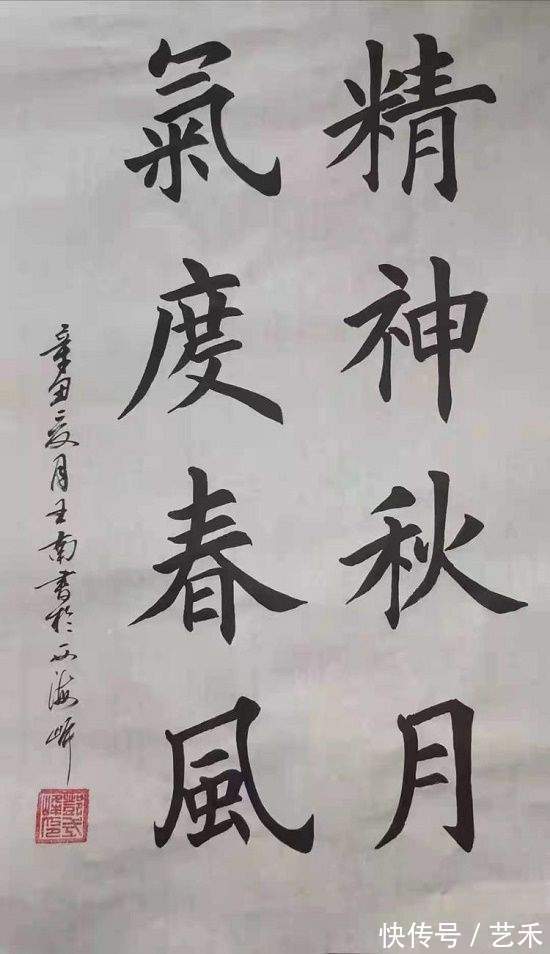 精神秋月
氣度春風
辛丑夏月王南書於西海岸
快传号 / 艺禾